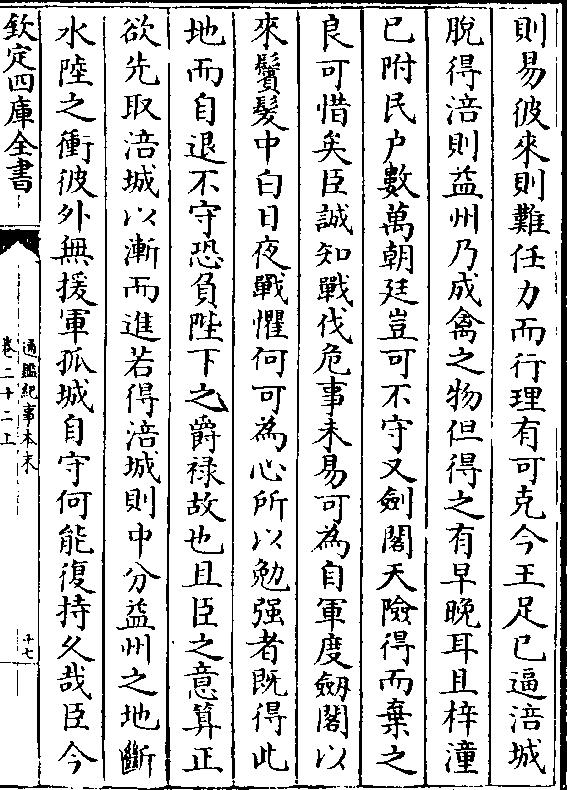 則易彼來則難任力而行理有可克今王足已逼涪城
脫得涪則益州乃成禽之物但得之有早晚耳且梓潼
已附民户數萬朝廷豈可不守又劍閣天險得而棄之
良可惜矣臣誠知戰伐危事未易可為自軍度劒閣以
來鬢髮中白日夜戰懼何可為心所以勉强者既得此
地而自退不守恐負陛下之爵禄故也且臣之意算正
欲先取涪城以漸而進若得涪城則中分益州之地斷
水陸之衝彼外無援軍孤城自守何能復持久哉臣今
欽定四庫全書
通鑑紀事本末
卷二十二上
十七